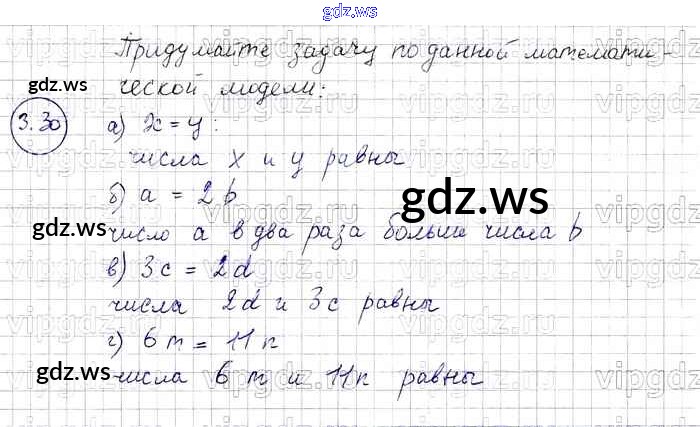 gdz.ws
Придумайте задачу по данной математи-
ческой модели:
gdz.ws
3.30
а) x = y:
числа x и y равны
б) a = 2b
gdz.ws
gdz.ws
число a в два раза больше числа b
в) 3c = 2d
числа 2d и 3c равны
г) 6m = 11n
gdz.ws
gdz.ws
числа 6m и 11n равны